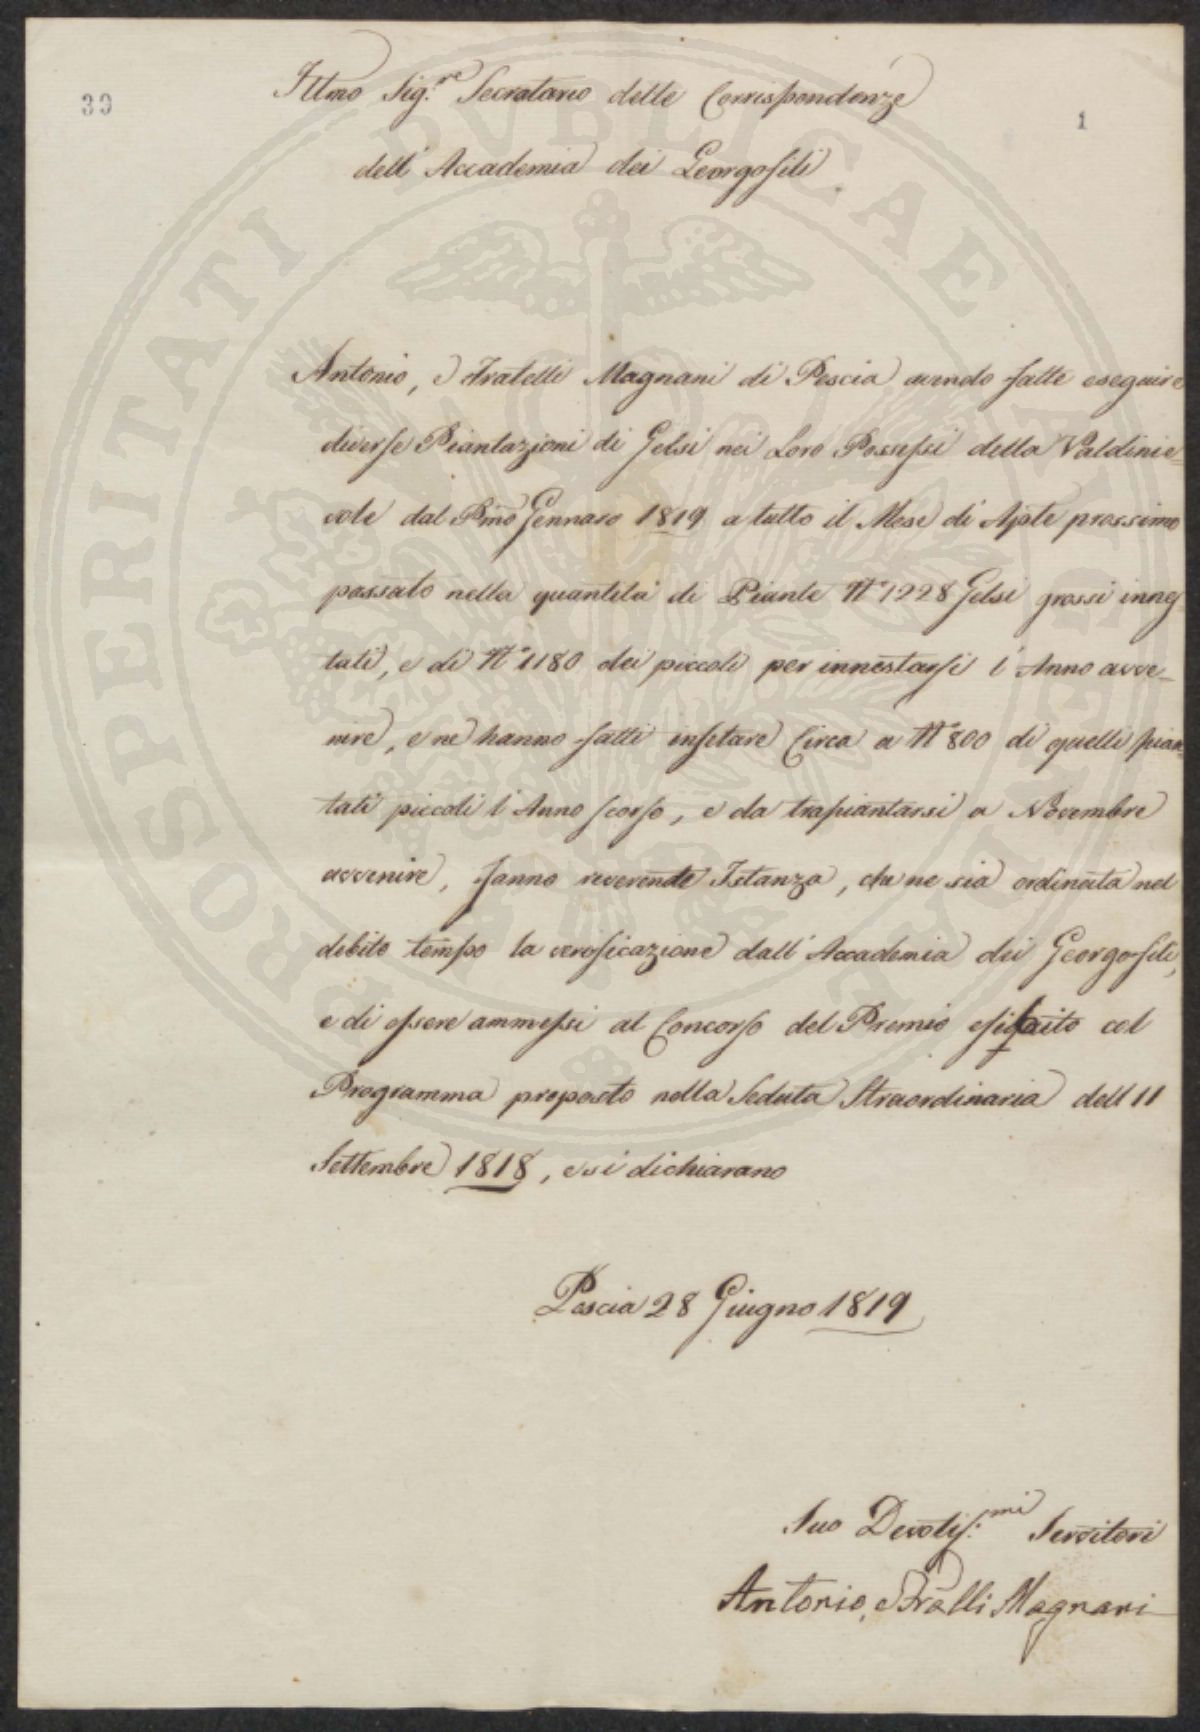 30
1
Illmo Sig.re Secretario delle Corrispondenze
dell'Accademia dei Georgofili
Antonio, e Fratelli Magnani di Pescia avendo fatte eseguire
diverse Piantazioni di Gelsi nei Loro Possessi della Valdinie-
vole dal Pmo Gennaro 1819 a tutto il Mese di Aple prossimo
passato nella quantità di Piante N° 1228 Gelsi grossi innes
tati, e di N° 1180 dei piccoli per innestarsi l'Anno avve-
nire, e ne hanno fatti insetare Circa a N° 800 di quelli pian-
tati piccoli l'Anno scorso, e da trapiantarsi a Novembre
avvenire, fanno reverente Istanza, che ne sia ordinata nel
debito tempo la verificazione dall'Accademia dei Georgofili,
e di essere ammessi al Concorso del Premio col
Programma proposto nella Seduta Straordinaria dell 11
Settembre 1818, e si dichiarano
Pescia 28 Giugno 1819
Suo Devotis:mi Servitori
Antonio, e Fratlli Magnani
PROSPERITATI PVBLICAE AVGENDAE